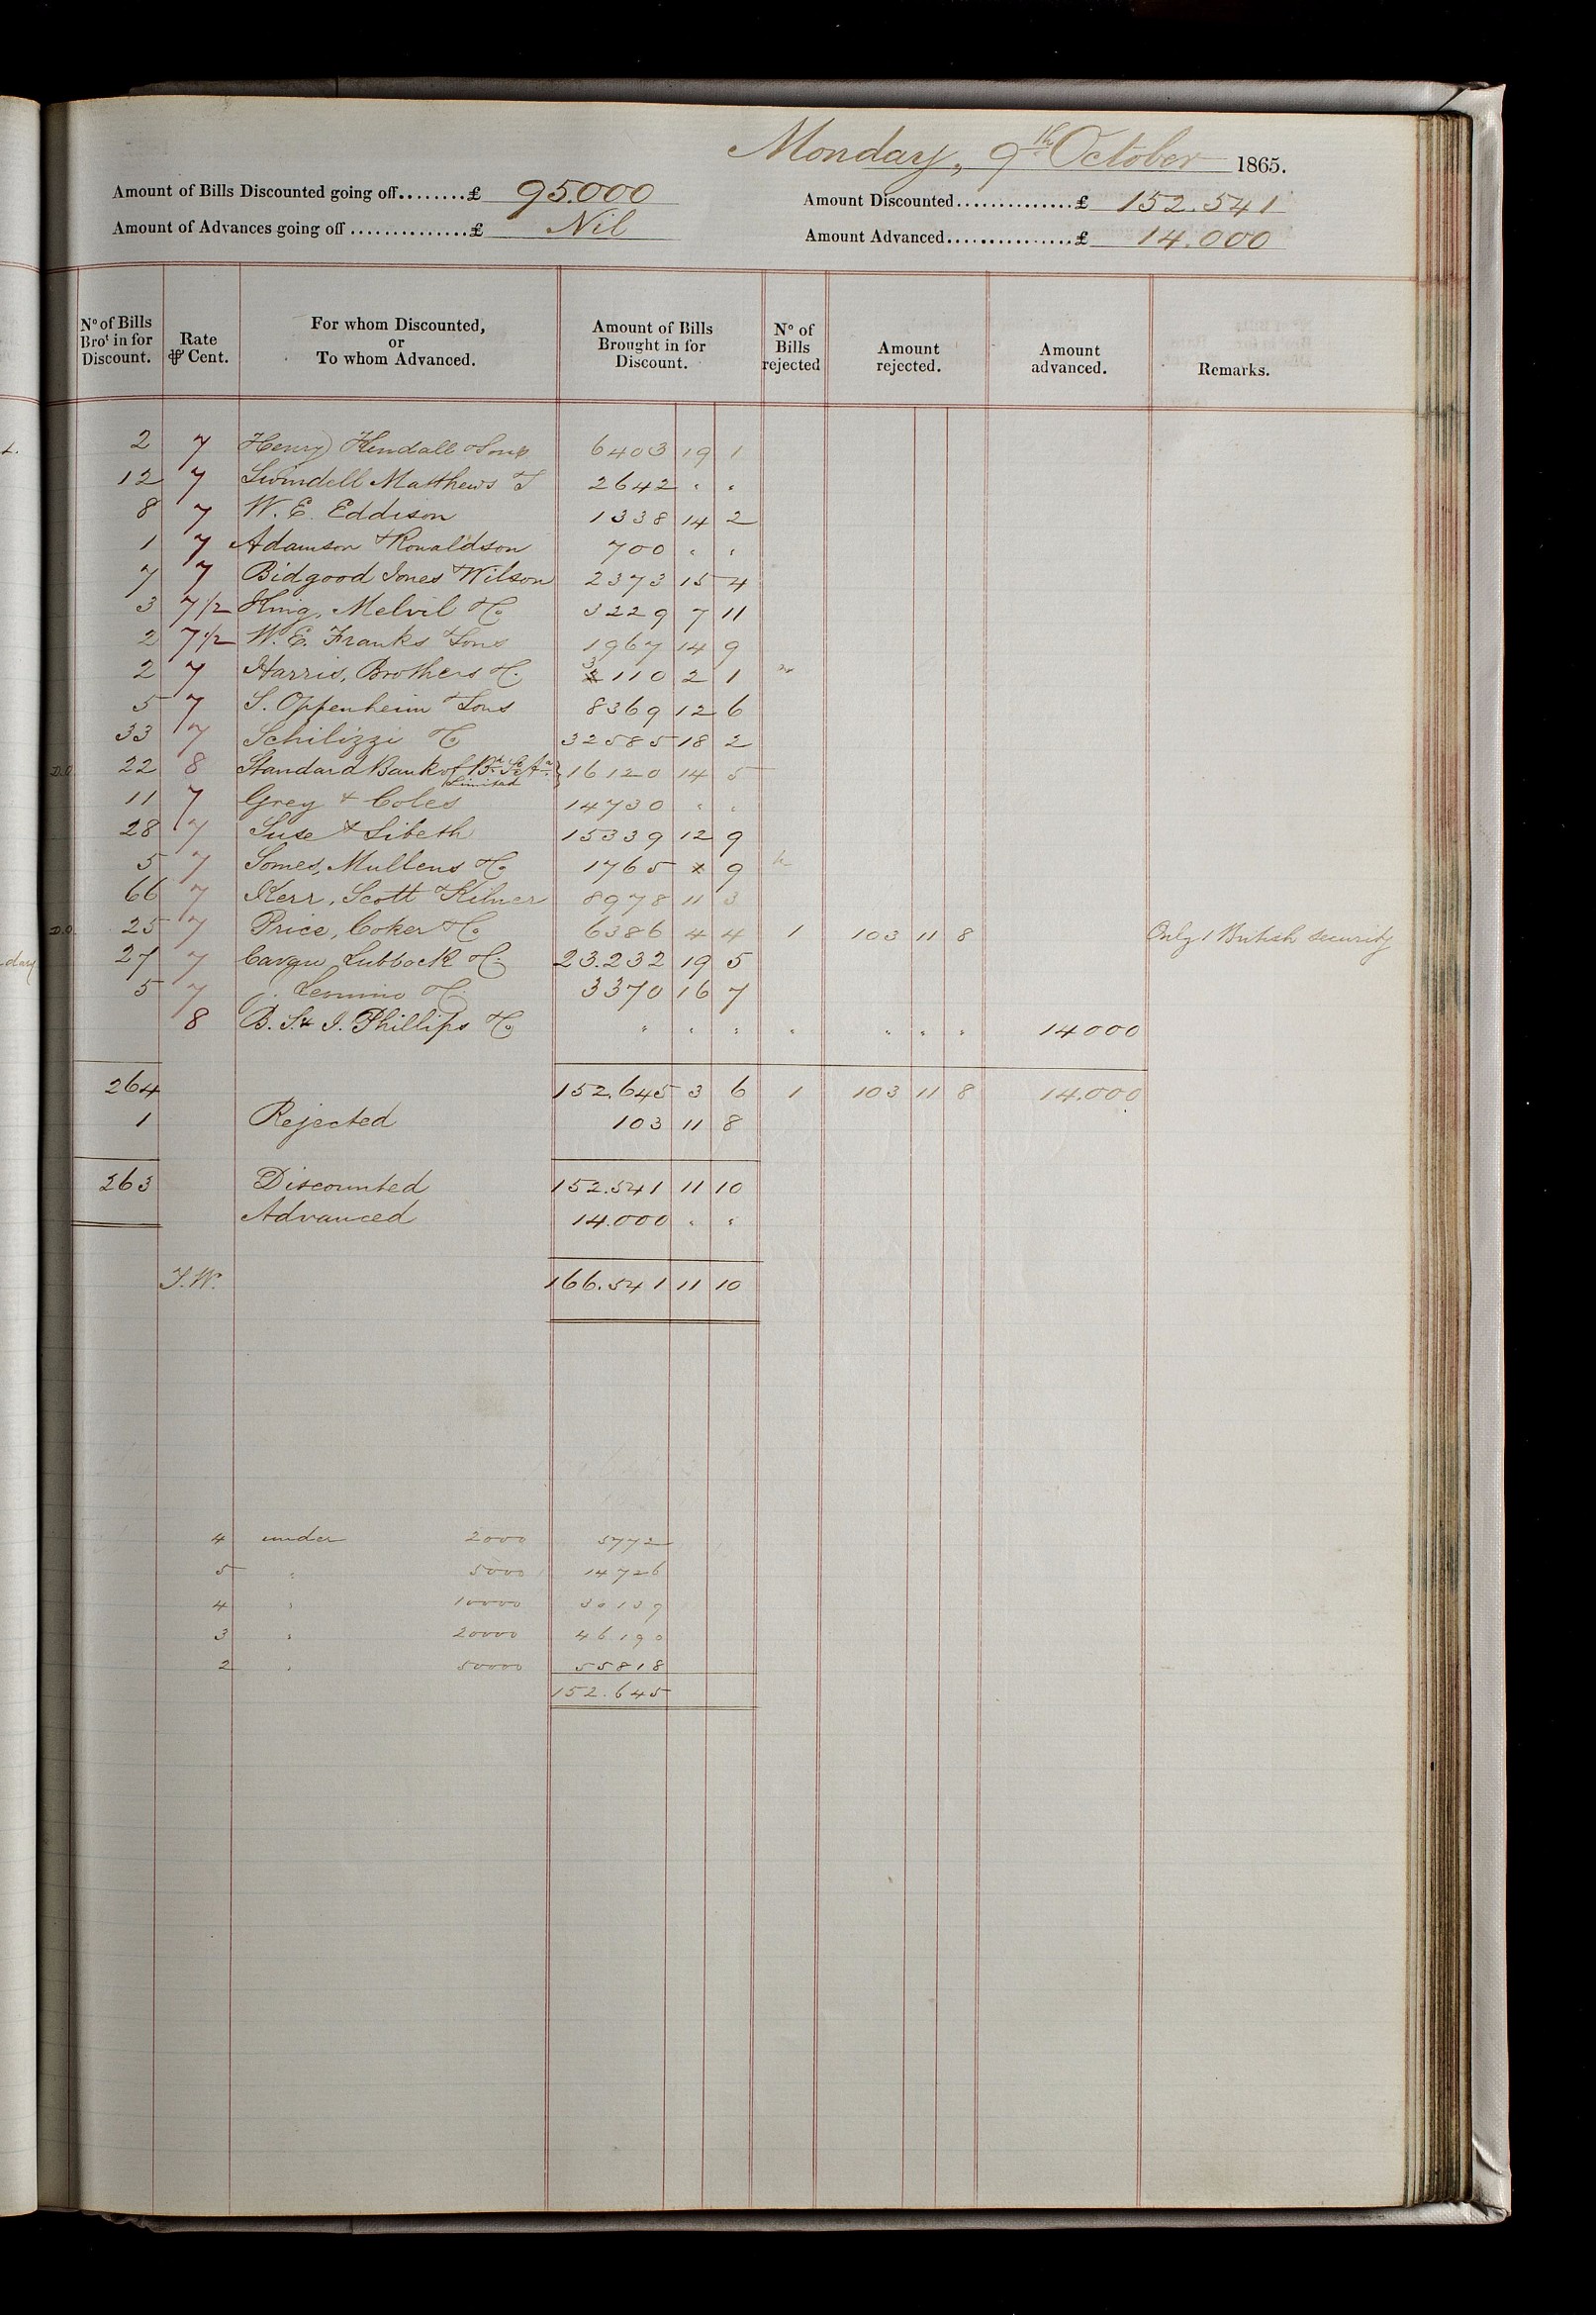 Monday, 9th October 1865.
Amount of Bills Discounted going off........£ 95.000
Amount Discounted..............£ 152.541
Amount of Advances going off..............£ Nil
Amount Advanced...............£ 14.000
No of Bills Brot in for Discount. Rate ⅌ Cent. For whom Discounted, or To whom Advanced. Amount of Bills Brought in for Discount. No of Bills rejected Amount rejected. Amount advanced. Remarks.
2 7 Henry Kendall & Sons 6403 19 1
12 7 Swindell Matthews & 2642 " "
8 7 W. E. Eddison 1338 14 2
1 7 Adamson & Ronaldson 700 " "
7 7 Bidgood Jones & Wilson 2373 15 4
3 7 1/2 King, Melvil & Co 3229 7 11
2 7 1/2 W. E. Franks & Sons 1967 14 9
2 7 Harris, Brothers & Co. 3110 2 1
5 7 S. Oppenheim & Sons 8369 12 6
33 7 Schilizzi & Co 32585 18 2
D.O. 22 8 Standard Bank of Bh. So. Afa. Limited 16120 14 5
11 7 Grey & Coles 14730 " "
28 7 Suse & Sibeth 15339 12 9
5 7 Somes, Mullens & Co 1765 x 9
66 7 Kerr, Scott & Kilner 8978 11 3
D.O. 25 7 Price, Coker & Co 6386 4 4 1 103 11 8 Only 1 British security
27 7 Cavan Lubbock & Co. 23.232 19 5
5 7 & Co. 3370 16 7
8 B. S. & I. Phillips & Co " " " " " " " 14000
264 152.645 3 6 1 103 11 8 14.000
1 Rejected 103 11 8
263 Discounted 152.541 11 10
Advanced 14.000 " "
166.541 11 10
4 under 2000 5772
5 " 5000 14726
4 " 10000 30139
3 " 20000 46190
2 " 50000 55818
152.645